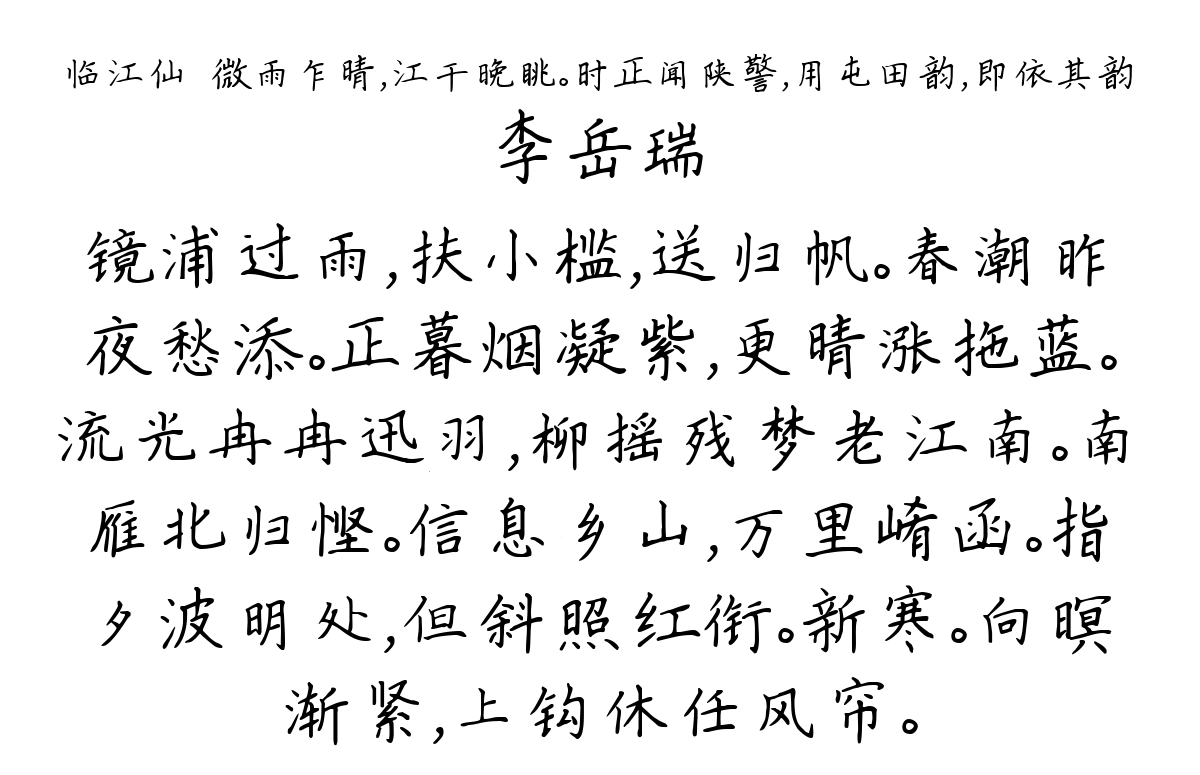 临江仙 微雨乍晴,江干晚眺。时正闻陕警,用屯田韵,即依其韵
李岳瑞
镜浦过雨,扶小槛,送归帆。春潮昨
夜愁添。正暮烟凝紫,更晴涨拖蓝。
流光冉冉迅羽,柳摇残梦老江南。南
雁北归悭。信息乡山,万里崤函。指
夕波明处,但斜照红衔。新寒。向暝
渐紧,上钩休任风帘。